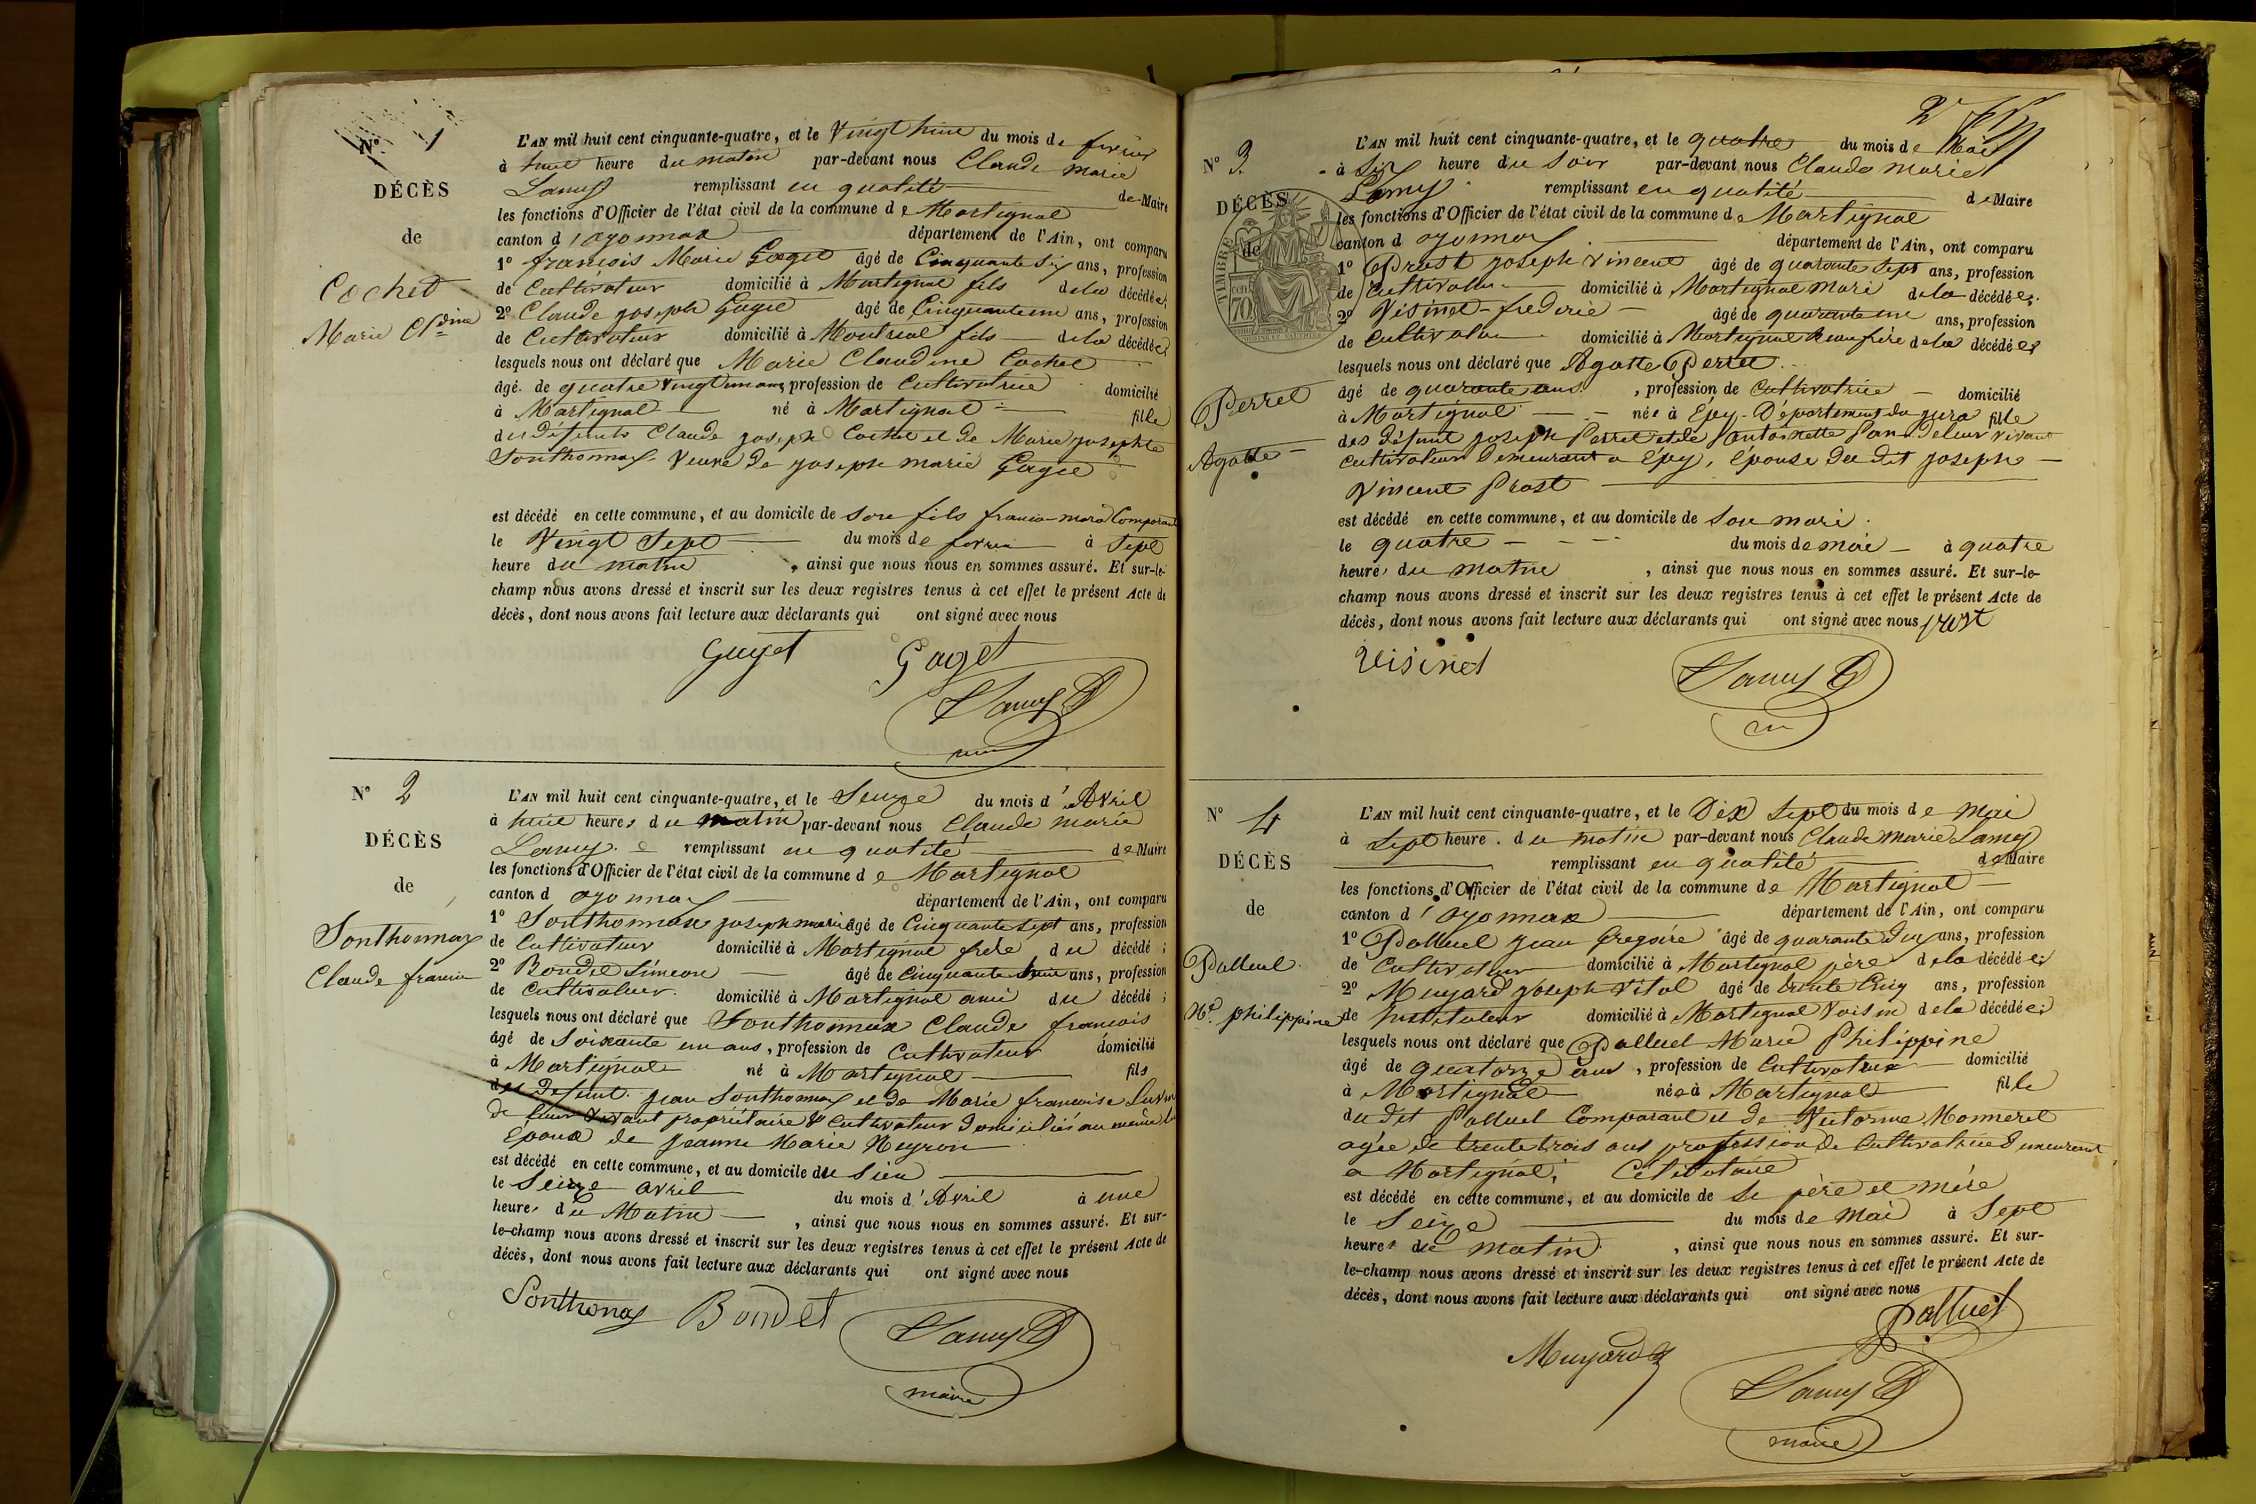 N° 1
DÉCÈS
de
Cochet
Marie Cl.dine
L'AN mil huit cent cinquante-quatre, et le Vingt huit du mois de février
à huit heure du matin par-devant nous Claude Marie
Lamy remplissant en qualité de Maire
les fonctions d'Officier de l'état civil de la commune de Martignat
canton d'oyonnax département de l'Ain, ont comparu
1° francois Marie Gaget âgé de Cinquante six ans, profession
de Cultivateur domicilié à Martignat fils de la décédée;
2° Claude joseph Gaget âgé de Cinquante un ans, profession
de Cultivateur domicilié à Montreal fils de la décédée;
lesquels nous ont déclaré que Marie Claudine Cochet
âgé de quatre vingt un ans, profession de Cultivatrice domicilié
à Martignat né à Martignat fille
des défunts Claude joseph Cochet et de Marie josephte
Sonthonnax. Veuve de joseph marie Gaget
est décédé en cette commune, et au domicile de son fils Comparant
le Vingt Sept du mois de fevrier à Sept
heure du matin, ainsi que nous nous en sommes assuré. Et sur-le-
champ nous avons dressé et inscrit sur les deux registres tenus à cet effet le présent Acte de
décès, dont nous avons fait lecture aux déclarants qui ont signé avec nous
Gaget Gaget
Lamy
N° 2
DÉCÈS
de
Sonthonnax
Claude francois
L'AN mil huit cent cinquante-quatre, et le Seize du mois d'Avril
à huit heures du matin par-devant nous Claude marie
Lamy remplissant en qualité de Maire
les fonctions d'Officier de l'état civil de la commune de Martignat
canton d oyonnax département de l'Ain, ont comparu
1° Sonthonnax joseph marie âgé de Cinquante sept ans, profession
de Cultivateur domicilié à Martignat frère du décédé;
2° Bondet Simeon âgé de Cinquante ans, profession
de Cultivateur domicilié à Martignat ami du décédé;
lesquels nous ont déclaré que Sonthonnax Claude francois
âgé de Soixante un ans, profession de Cultivateur domicilié
à Martignat né à Martignat fils
des défunt jean Sonthonnax et de Marie francoise
de leur vivant propriétaire & Cultivateur domiciliés au même
Epoux de Jeanne Marie Neyron
est décédé en cette commune, et au domicile du sien
le Seize avril du mois d'Avril à une
heure, du Matin, ainsi que nous nous en sommes assuré. Et sur-
le-champ nous avons dressé et inscrit sur les deux registres tenus à cet effet le présent Acte de
décès, dont nous avons fait lecture aux déclarants qui ont signé avec nous
Sonthonax Bondet
Lamy
maire
2
N° 3
DÉCÈS
de
Perret
Agatte
TIMBRE
70
L'AN mil huit cent cinquante-quatre, et le quatre du mois de Mai
à Six heure du Soir par-devant nous Claude Marie
Lamy remplissant en qualité de Maire
les fonctions d'Officier de l'état civil de la commune de Martignat
canton d oyonnax département de l'Ain, ont comparu
1° Prost joseph vincent âgé de quarante sept ans, profession
de Cultivateur domicilié à Martignat mari de la décédée;
2° Visinet frederic âgé de quarante un ans, profession
de Cultivateur domicilié à Martignat beaufrère de la décédée;
lesquels nous ont déclaré que Agatte Perret
âgé de quarante ans, profession de Cultivatrice domicilié
à Martignat née à Epy. Département du jura fille
des défunt joseph Perret et de antoinette de leur vivant
cultivateur Demeurant a Epy, Epouse du dit joseph
Vincent Prost
est décédé en cette commune, et au domicile de Son mari
le quatre du mois de mai à quatre
heure, du matin, ainsi que nous nous en sommes assuré. Et sur-le-
champ nous avons dressé et inscrit sur les deux registres tenus à cet effet le présent Acte de
décès, dont nous avons fait lecture aux déclarants qui ont signé avec nous prost
Visinet
Lamy
N° 4
DÉCÈS
de
Palluel
Me philippine
L'AN mil huit cent cinquante-quatre, et le Dix Sept du mois de Mai
à Sept heure. du matin par-devant nous Claude Marie Lamy
remplissant en qualité de Maire
les fonctions d'Officier de l'état civil de la commune de Martignat
canton d'oyonnax département de l'Ain, ont comparu
1° Palluel jean Gregoire âgé de quarante ans, profession
de Cultivateur domicilié à Martignat père de la décédée;
2° Muyard joseph Vital âgé de trente Cinq ans, profession
de Instituteur domicilié à Martignat Voisin de la décédée;
lesquels nous ont déclaré que Palluel Marie Philippine
âgé de quatorze ans, profession de Cultivatrice domicilié
à Martignat née à Martignat fille
du dit Palluel Comparant et de Victorine Monneret
agée de trente trois ans profession de Cultivatrice Demeurant
a Martignat, Célibataire
est décédé en cette commune, et au domicile de Se père et mère
le Seize du mois de Mai à Sept
heures du matin, ainsi que nous nous en sommes assuré. Et sur-
le-champ nous avons dressé et inscrit sur les deux registres tenus à cet effet le présent Acte de
décès, dont nous avons fait lecture aux déclarants qui ont signé avec nous
palluel
Muyard
Lamy
maire